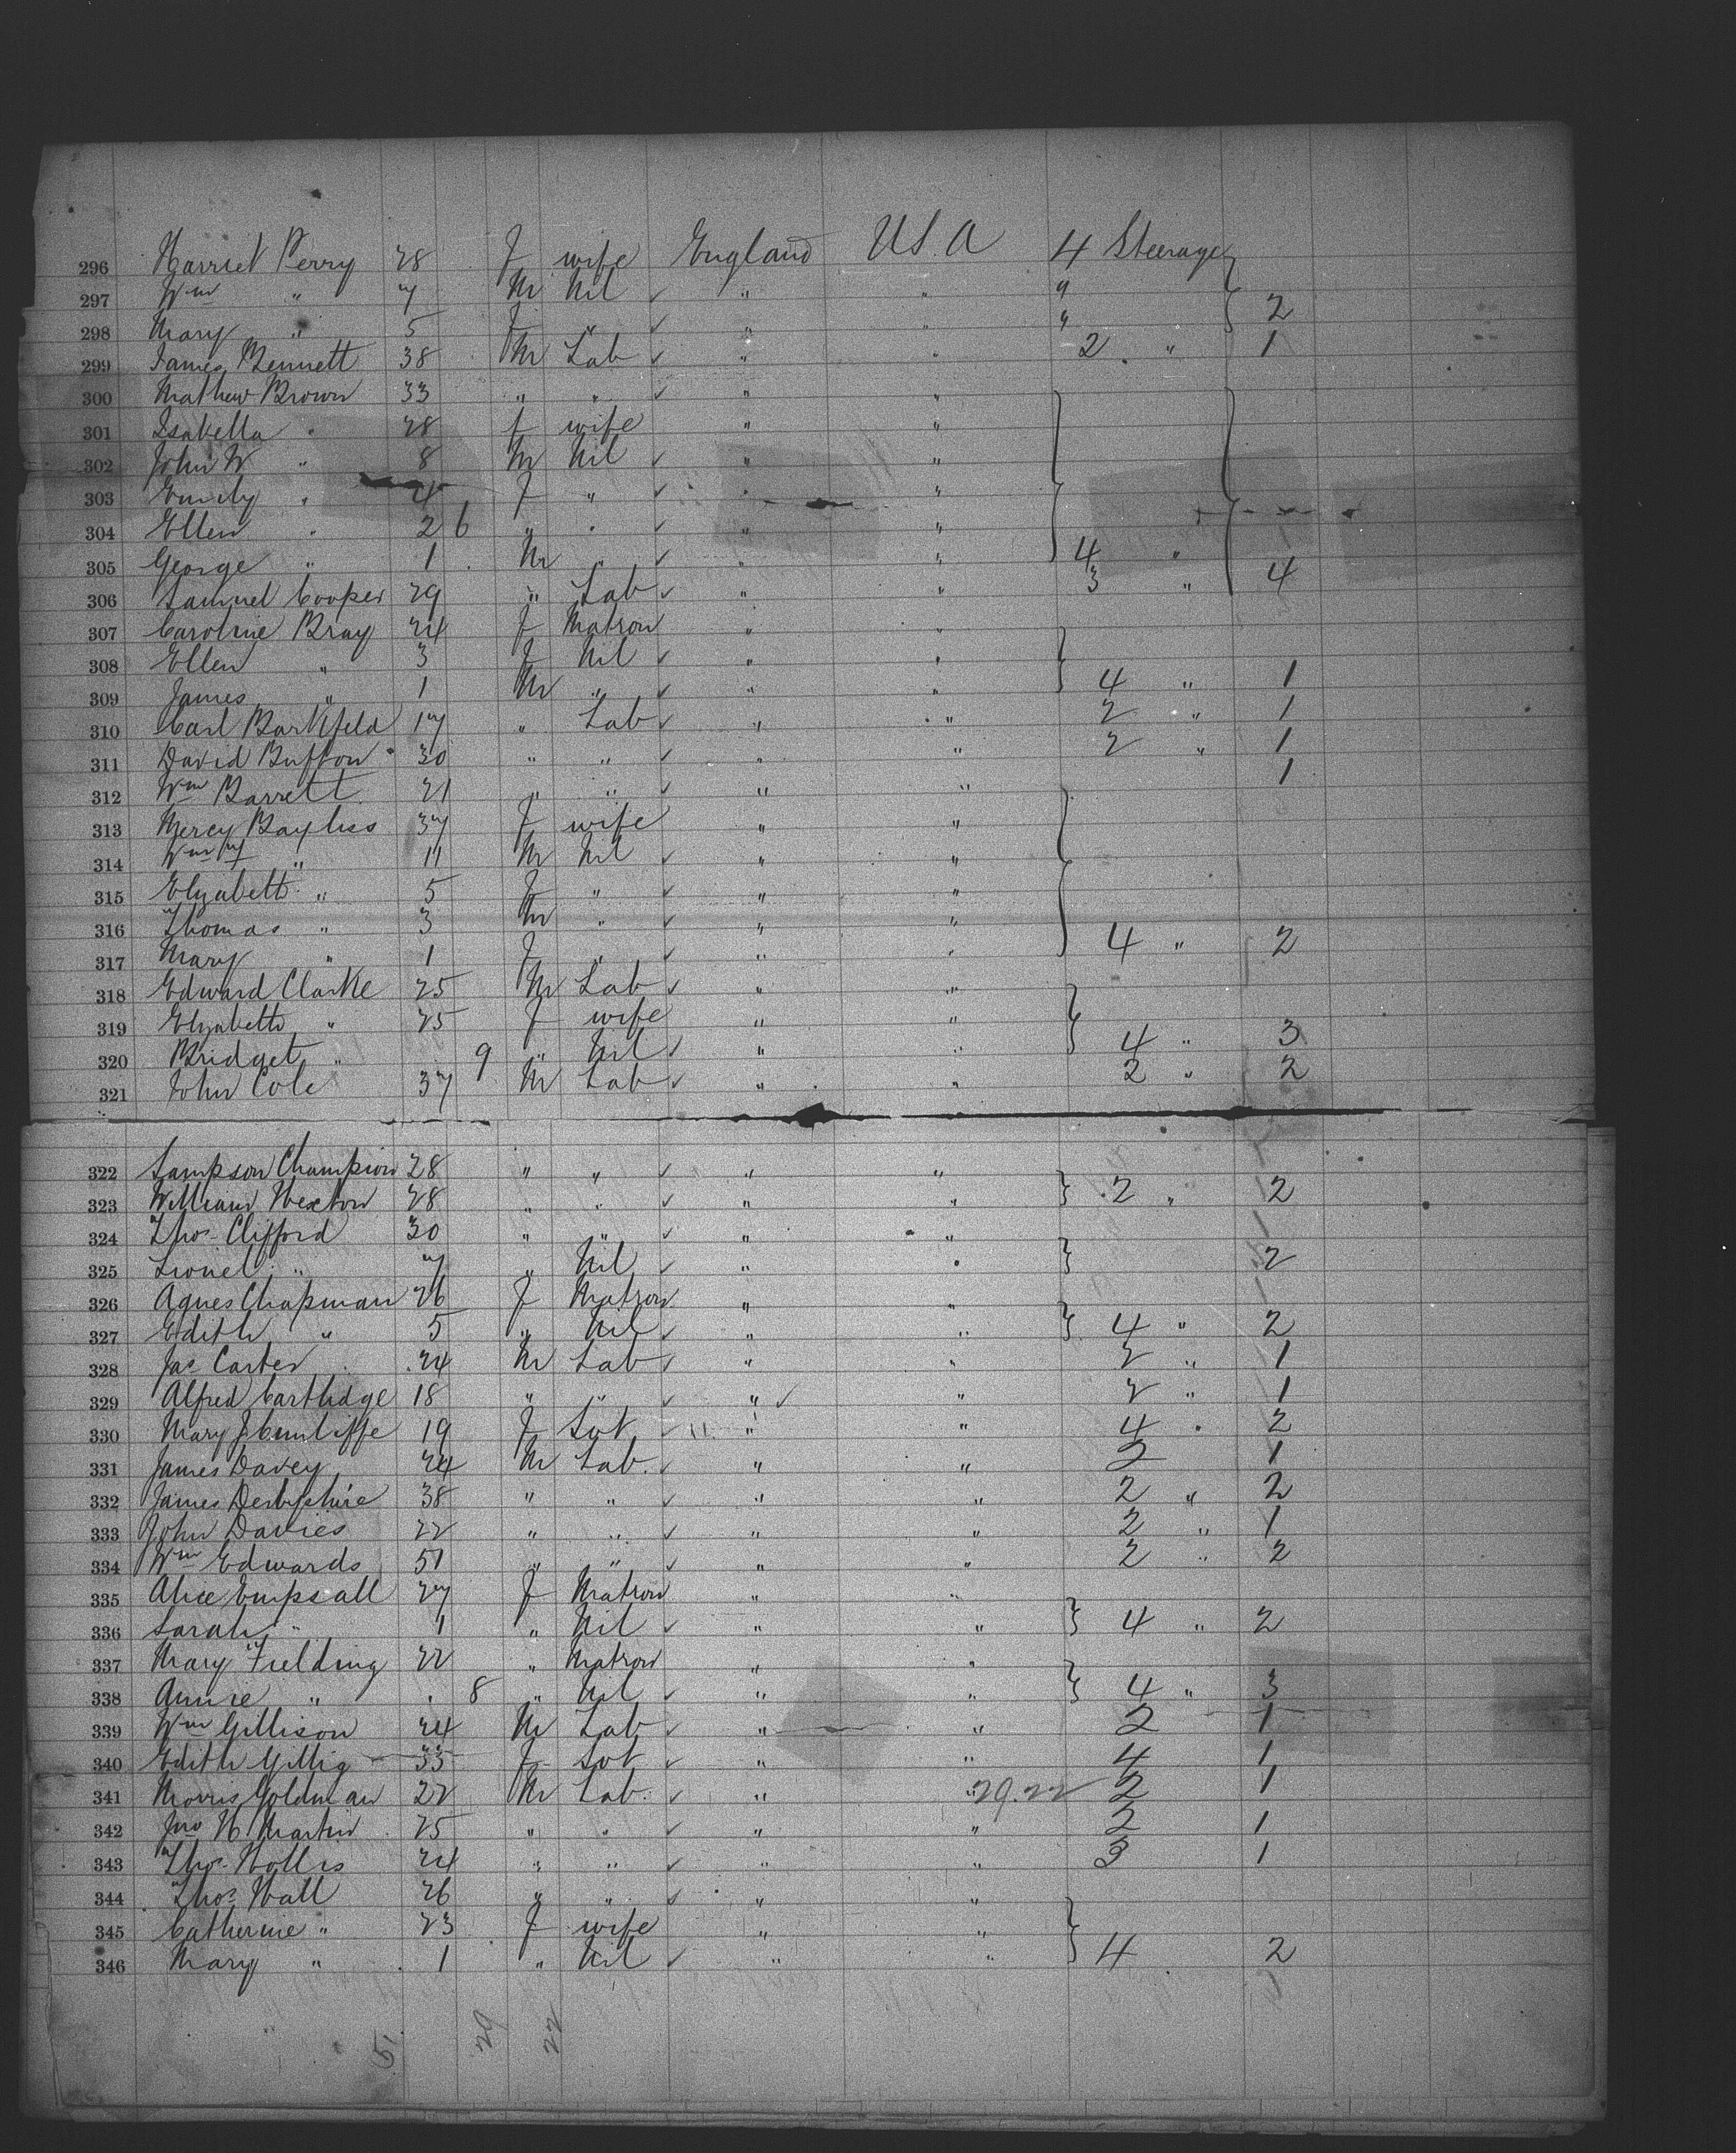 296 Harriet Perry 28 F wife England U.S.A 4 Steerage
297 Wm " 7 M Nil ✓ " " "
298 Mary " 5 F " ✓ " " " 2
299 James Bennett 38 M Lab ✓ " " 2 " 1
300 Mathew Brown 33 " " ✓ " "
301 Isabella " 28 f wife " "
302 John W " 8 M Nil ✓ " "
303 Emily " 4 F " ✓ " "
304 Ellen " 2 6 " " ✓ " "
305 George " 1 M " ✓ " " 4 "
306 Samuel Cooper 29 " Lab ✓ " " 3 " 4
307 Caroline Bray 24 F Matron " "
308 Ellen " 3 F Nil ✓ " "
309 James " 1 M " ✓ " " 4 " 1
310 Carl 17 " Lab ✓ " " 2 " 1
311 David Buffon 30 " " ✓ " " 2 " 1
312 Wm Barrett 21 " " ✓ " " 1
313 Mercy Bayliss 37 F wife " "
314 Wm " 11 M Nil ✓ " "
315 Elyabeth " 5 F " ✓ " "
316 Thomas " 3 M " ✓ " "
317 Mary " 1 F " ✓ " " 4 " 2
318 Edward Clarke 25 M Lab ✓ " "
319 Elyabeth " 25 F wife " "
320 Bridget " 9 " Nil ✓ " " 4 " 3
321 John Cole 37 M Lab ✓ " " 2 " 2
322 Sampson Champion 28 " " ✓ " "
323 William Hexton 28 " " ✓ " " 2 " 2
324 Thos Clifford 30 " " ✓ " "
325 Lionel " 7 " Nil ✓ " " 2
326 Agnes Chapman 26 F Matron " "
327 Edith " 5 " Nil ✓ " " 4 " 2
328 Jas Carter 24 M Lab ✓ " " 2 " 1
329 Alfred Cartlidge 18 " " ✓ " ✓ " 2 " 1
330 Mary J Cunliffe 19 F Svt ✓ " " 4 " 2
331 James Davey 24 M Lab. ✓ " " 2 1
332 James Derbyshire 38 " " ✓ " " 2 " 2
333 John Davies 22 " " ✓ " " 2 " 1
334 Wm Edwards 51 " " ✓ " " 2 " 2
335 Alice Empsall 27 F Matron " "
336 Sarah " 1 " Nil ✓ " " 4 " 2
337 Mary Fielding 22 " Matron " "
338 Annie " 8 " Nil ✓ " " 4 " 3
339 Wm Gillison 24 M Lab ✓ " " 2 1
340 Edith Gillig 33 F Svt ✓ " " 4 1
341 Morris Goldman 22 M Lab. ✓ " " 29.22 2 1
342 Jno H Martin 25 " " ✓ " " 2 1
343 Thos Hollis 24 " " ✓ " " 3 1
344 Thos Hall 26 " " ✓ " "
345 Catherine " 23 F wife " "
346 Mary " 1 " Nil ✓ " " 4 2
51 29 22